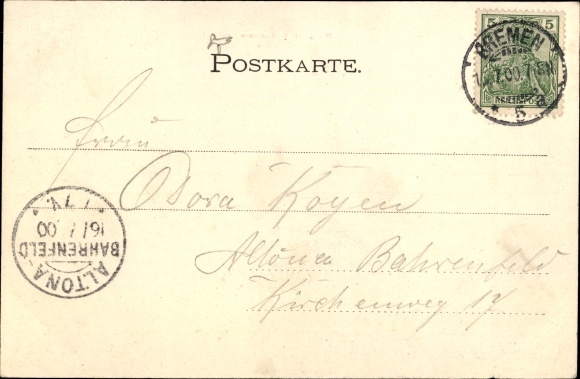 POSTKARTE.
5 5
BREMEN
7.00.7
5
Dora Koyen
Altona Bahrenfeld
Kirchenweg 17
ALTONA-
BAHRENFELD
16/7 00
* 1.7 V. *